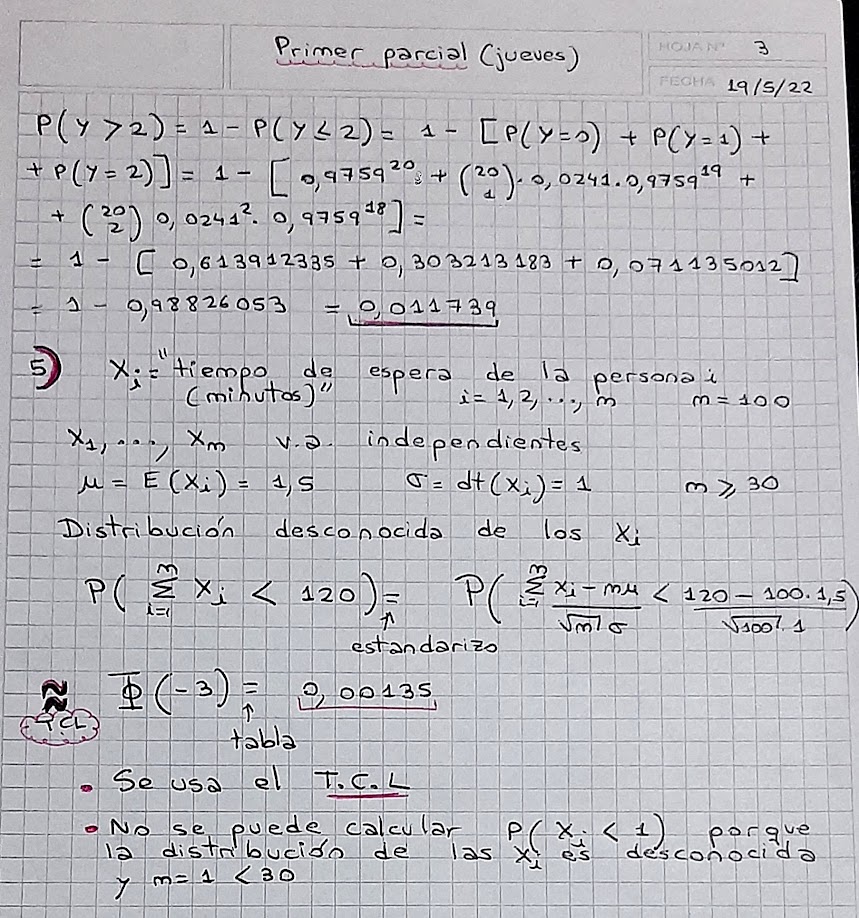 Primer parcial (jueves)
HOJA Nº 3
FECHA 19/5/22
P(Y > 2) = 1 - P(Y ≤ 2) = 1 - [P(Y=0) + P(Y=1) +
+ P(Y=2)] = 1 - [0,9759^20 + (20 1) · 0,0241 · 0,9759^19 +
+ (20 2) 0,0241^2 · 0,9759^18] =
= 1 - [0,613912335 + 0,303213183 + 0,071135012]
= 1 - 0,98826053 = 0,011739
5) Xi = "tiempo de espera de la persona i
(minutos)" i = 1, 2, ..., m m = 100
X1, ..., Xm v.a. independientes
μ = E(Xi) = 1,5 σ = dt(Xi) = 1 m ≥ 30
Distribución desconocida de los Xi
P(∑_{i=1}^{m} Xi < 120) = P(∑_{i=1}^{m} (Xi - mμ)/(√m σ) < (120 - 100.1,5)/(√100 . 1))
↑
estandarizo
≈ Φ(-3) = 0,00135
T.C.L ↑
tabla
• Se usa el T.C.L
• No se puede calcular P(Xi < 1) porque
la distribución de las Xi es desconocida
y m = 1 < 30